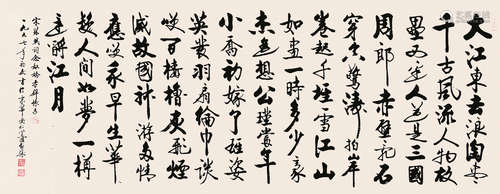 大江東去浪淘盡
千古風流人物故
壘西邊人道是三國
周郎赤壁亂石
穿空驚濤拍岸
卷起千堆雪江山
如畫一時多少豪
杰遥想公瑾當年
小喬初嫁了雄姿
英發羽扇綸巾談
笑間檣櫓灰飛煙
滅故國神游多情
應笑我早生華
髮人間如夢一樽
還酹江月
念奴嬌赤壁懷古
一九九七年